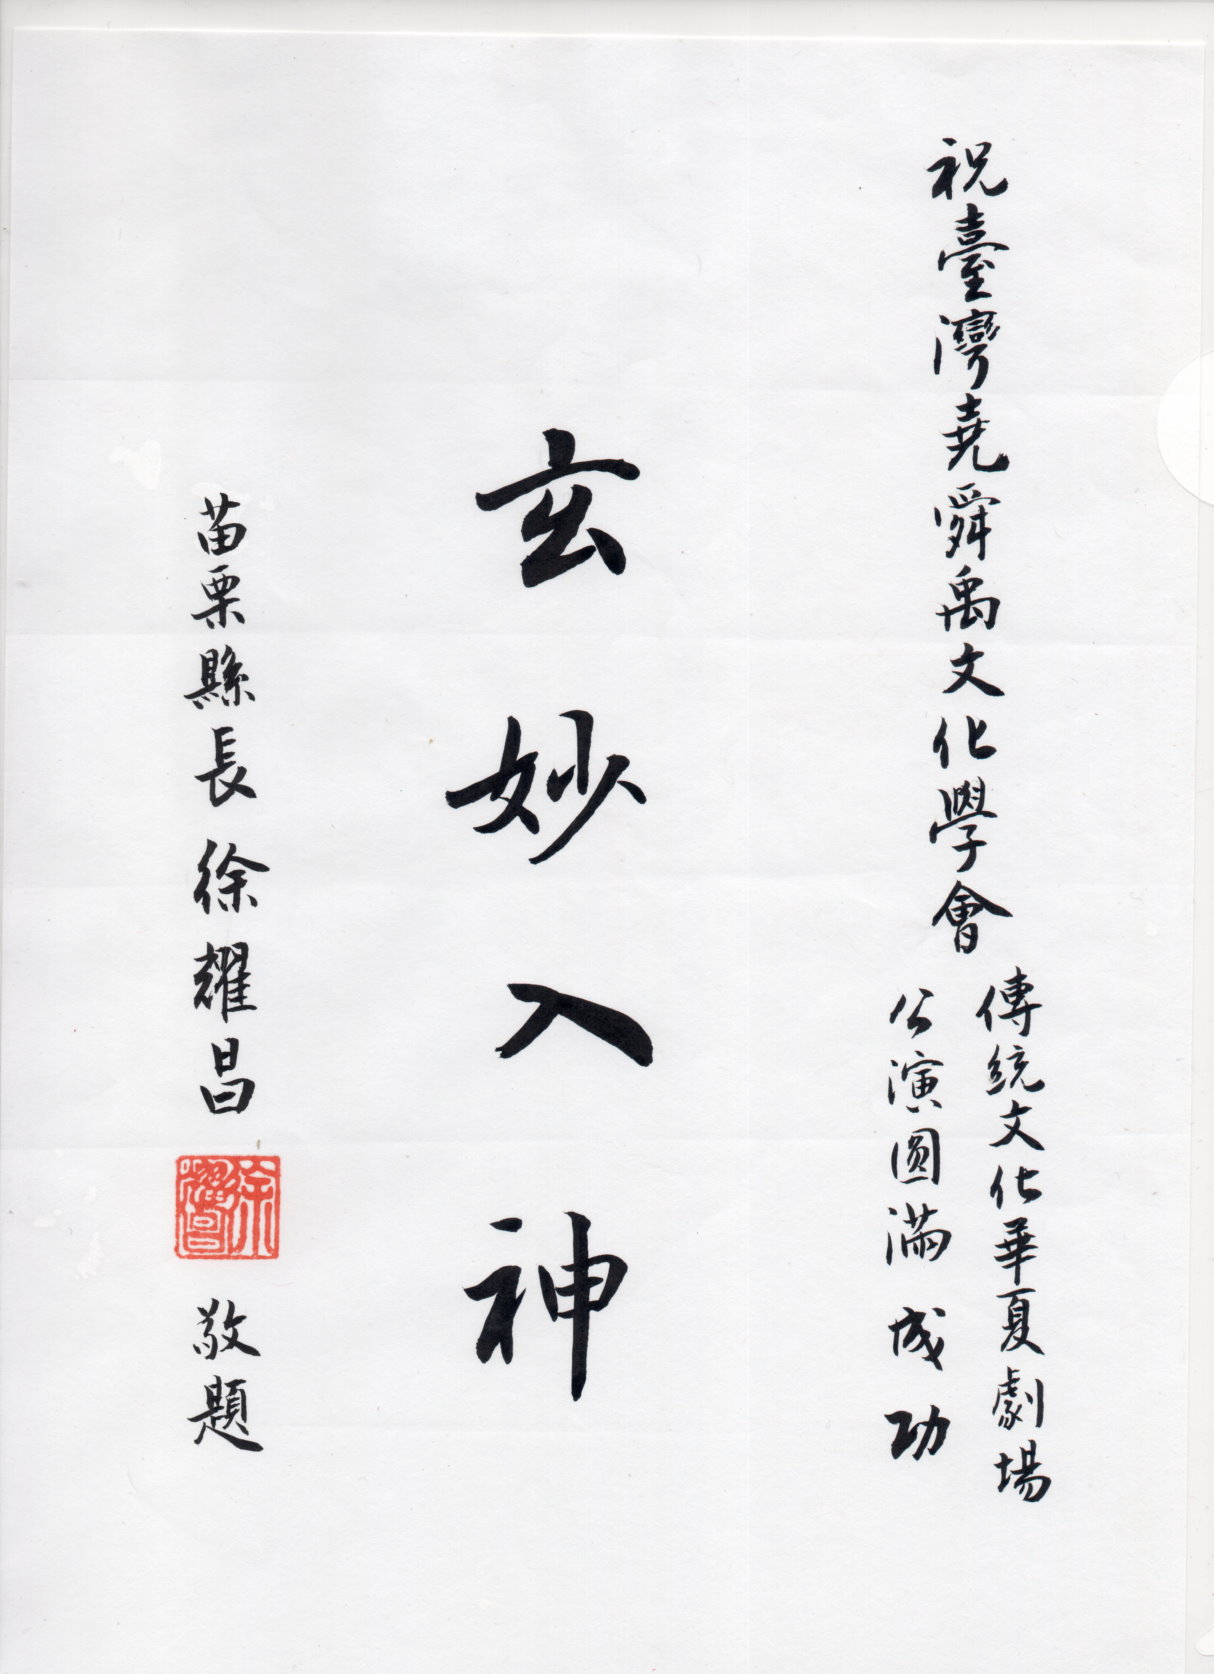 祝臺灣堯舜禹文化學會
傳統文化華夏劇場
公演圓滿成功
玄妙入神
苗栗縣長徐耀昌
徐耀昌
敬題